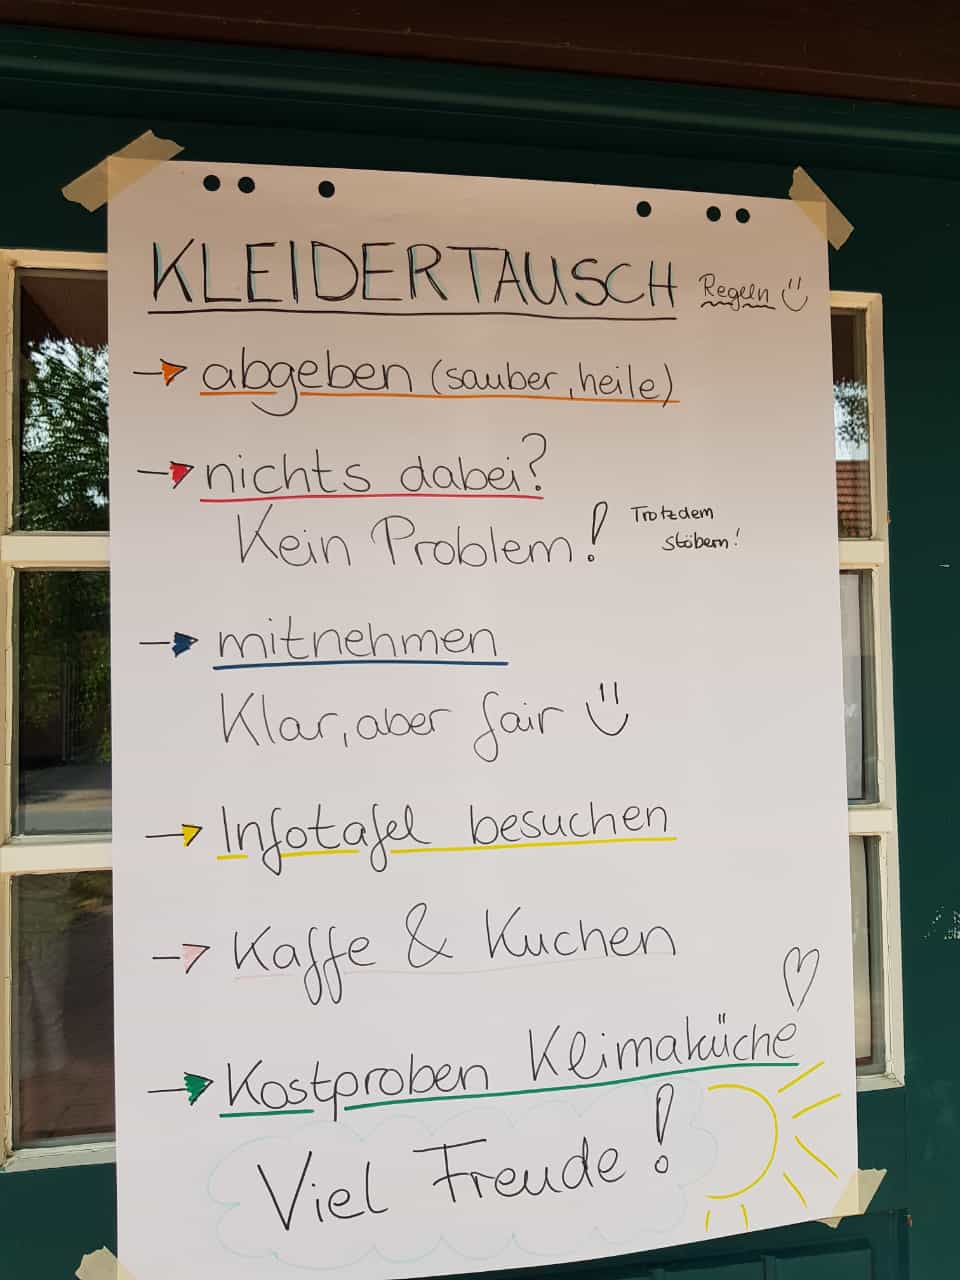 KLEIDERTAUSCH Regeln
abgeben (sauber, heile)
nichts dabei?
Kein Problem! Trotzdem
stöbern!
mitnehmen
Klar, aber fair
Infotafel besuchen
Kaffe & Kuchen
Kostproben Klimaküche
Viel Freude!